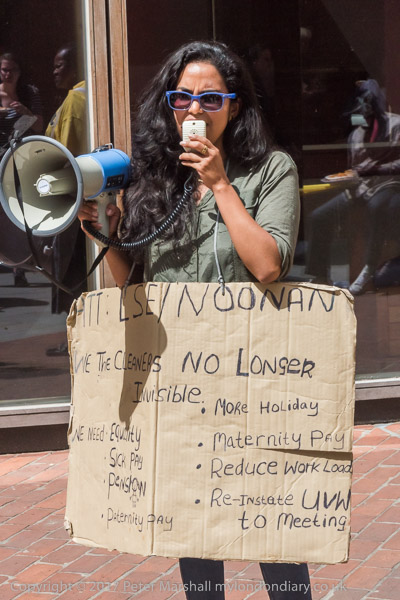 ATT: LSE/NOONAN
WE THE CLEANERS NO LONGER
Invisible.
WE NEED: EQUITY
• SICK PAY
• PENSION
• Paternity PAY
• MORE HOLIDAY
• MATERNITY PAY
• REDUCE WORK LOAD
• RE-INSTATE UVW
TO MEETING
Copyright © Peter Marshall mylondondiary.co.uk